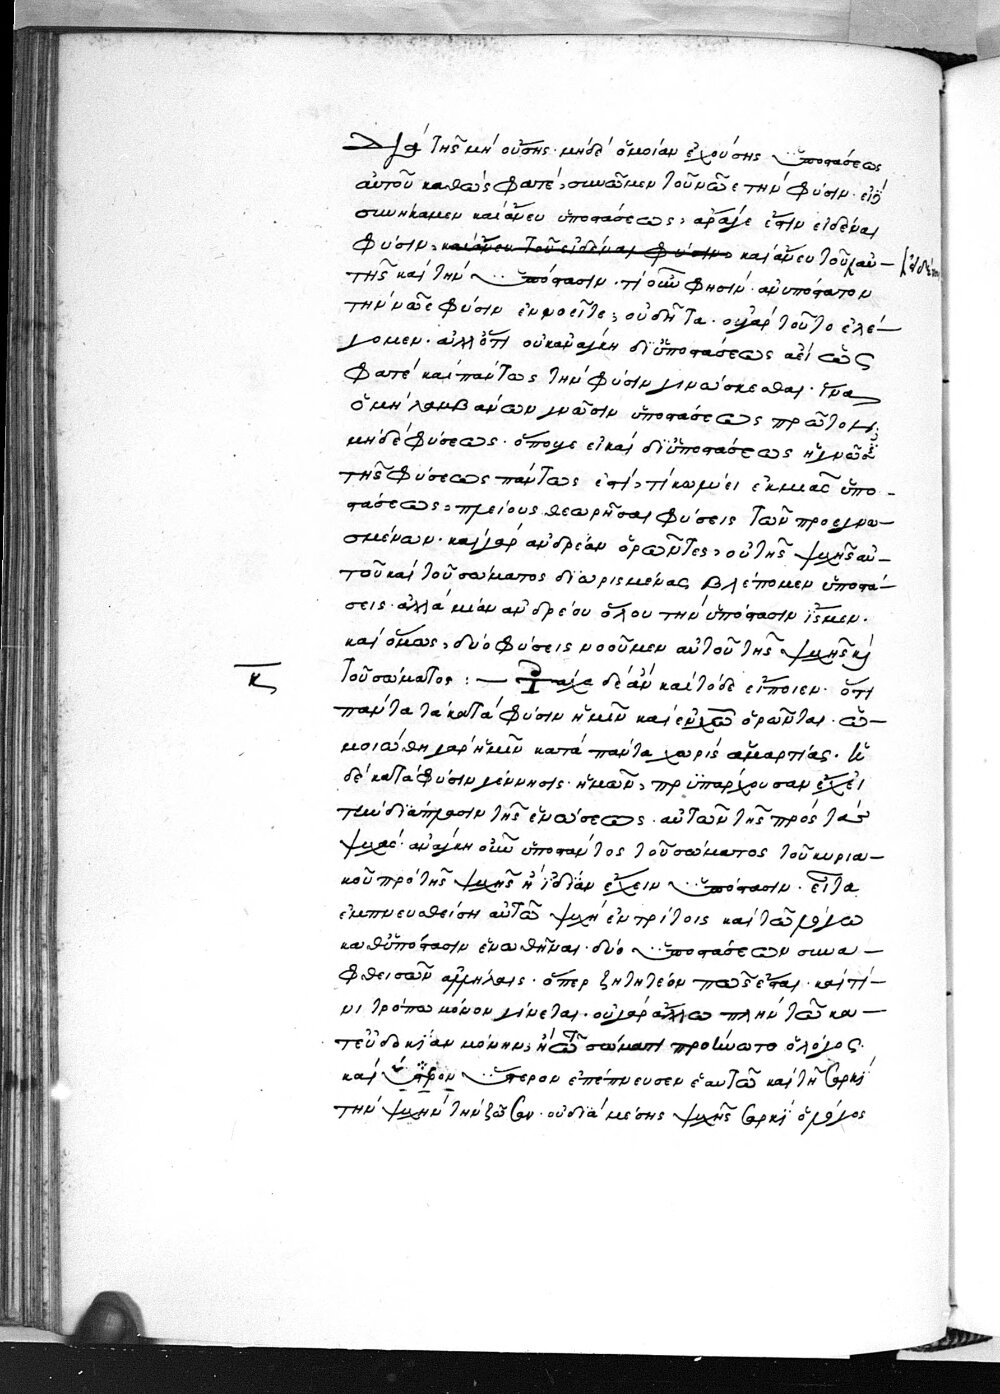 διὰ τῆς μὴ οὔσης μηδὲ ὁμοίαν ἐχούσης ὑποστάσεως
αὐτοῦ καθὼς φατὲ, συνῶμεν τοῦ νῶε τὴν φύσιν. εἰ
συνήκαμεν καὶ ἄνευ ὑποστάσεως, ἆρά γε ἔστιν εἰδέναι
φύσιν, καὶ ἄνευ τοῦ εἰδέναι φύσιν, καὶ ἄνευ τοῦ
τῆς καὶ τὴν ὑπόστασιν. τί οὖν φησίν. ἀνυπόστατον
τὴν νῶε φύσιν ἐννοεῖτε; οὐδῆτα. οὐ γὰρ τοῦτο ἐλέ-
γομεν. ἀλλ' ὅτι οὐκ ἀνάγκη δι' ὑποστάσεως ἀεὶ ὥς
φατὲ καὶ πάντως τὴν φύσιν γινώσκεσθαι. ἵνα
ὁ μὴ λαμβάνων γνῶσιν ὑποστάσεως πρῶτον,
μηδὲ φύσεως. ὅπου γε εἰ καὶ δι' ὑποστάσεως ἡ γνῶσις
τῆς φύσεως πάντως ἐστὶ, τί κωλύει ἐκ μιᾶς ὑπο-
στάσεως, πλείους θεωρῆσαι φύσεις τῶν προεγνω-
σμένων. καὶ γὰρ ἀνδρέαν ὁρῶντες, οὐ τῆς ψυχῆς αὐ-
τοῦ καὶ τοῦ σώματος διωρισμένας βλέπομεν ὑποστά-
σεις. ἀλλὰ μίαν ἀνδρέου ὅλου τὴν ὑπόστασιν ἴσμεν.
καὶ ὅμως, δύο φύσεις νοοῦμεν αὐτοῦ τῆς ψυχῆς καὶ
τοῦ σώματος: — Τάχα δὲ ἂν καὶ τόδε εἴποιεν. ὅτι
κ
πάντα τὰ κατὰ φύσιν ἡμῖν καὶ ἐν χῶ ὁρῶνται. ὡ-
μοιώθη γὰρ ἡμῖν κατὰ πάντα χωρὶς ἁμαρτίας. ἡ
δὲ κατὰ φύσιν γέννησις ἡμῶν, προϋπάρχουσαν ἔχει
τὴν διάπλασιν τῆς ἑνώσεως αὐτῶν τῆς πρὸς τὰς
ψυχάς. ἀνάγκη οὖν ὑποστάντος τοῦ σώματος τοῦ κυρια-
κοῦ πρὸ τῆς ψυχῆς ἢ ἰδίαν ἔχειν ὑπόστασιν. εἶτα
ἐμπνευσθείση αὐτῶ ψυχῆ ἐν τρίτοις καὶ τῶ λόγω
καθ' ὑπόστασιν ἑνωθῆναι. δύο ὑποστάσεων συνα-
φθεισῶν ἀλλήλαις. ὅπερ ζητητέον πῶς ἔσται. καὶ τί-
νι τρόπω μόνον γίνεται. οὐ γὰρ ἄλλω πλὴν τῶ κα-
τ' εὐδοκίαν μόνην, ἢ ᾧ τῶ σώματι προήνωτο ὁ λόγος.
καὶ ὕστερον ὕστερον ἐπέπνευσεν ἑαυτῶ καὶ τῆ σαρκὶ
τὴν ψυχὴν τὴν ζῶσαν. οὐ διὰ μέσης ψυχῆς σαρκὶ ὁ λόγος